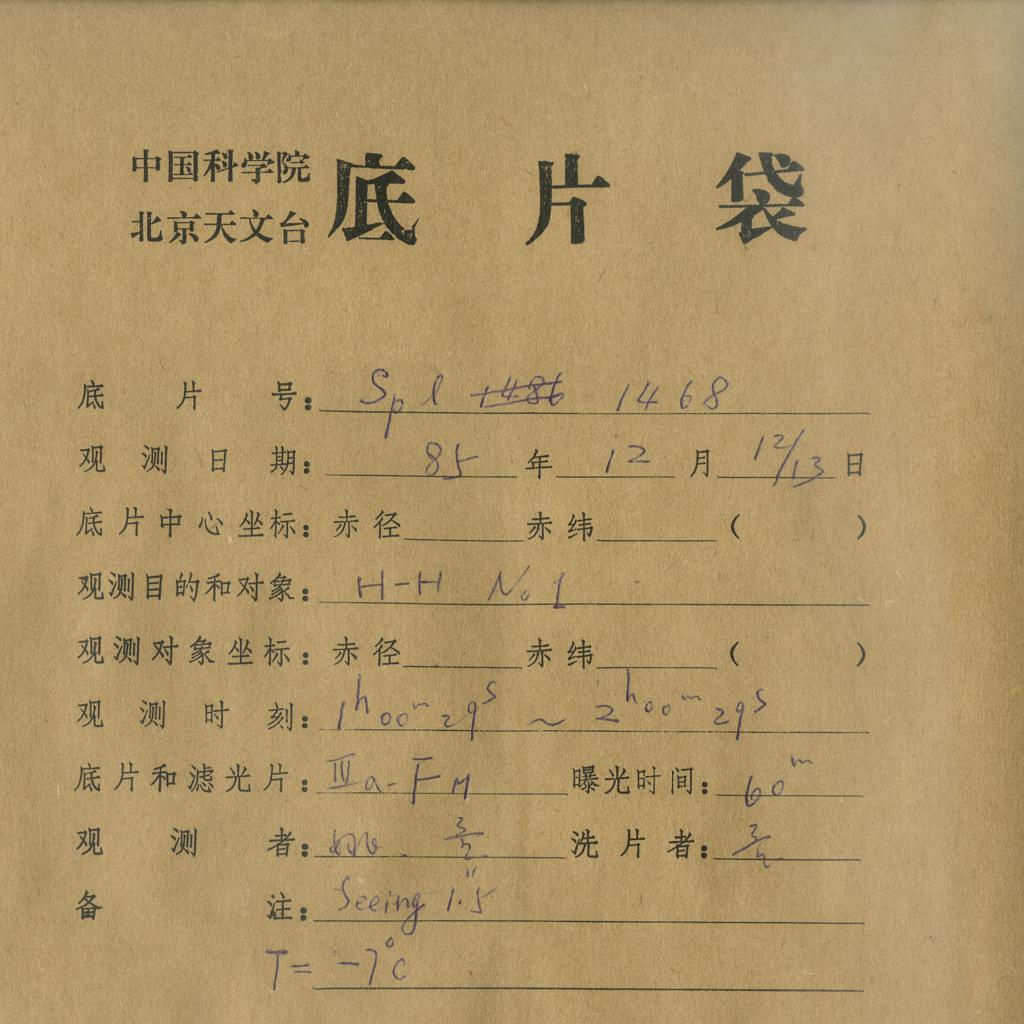 中国科学院
北京天文台
底片袋
底片号: Spl 1486 1468
观测日期: 85 年 12 月 12/13 日
底片中心坐标: 赤径 赤纬 ( )
观测目的和对象: H-H No 1
观测对象坐标: 赤径 赤纬 ( )
观测时刻: 1h00m29s ~ 2h00m29s
底片和滤光片: IIIa-F 曝光时间: 60m
观测者: 洗片者:
备注: Seeing 1".5
T= -7°C